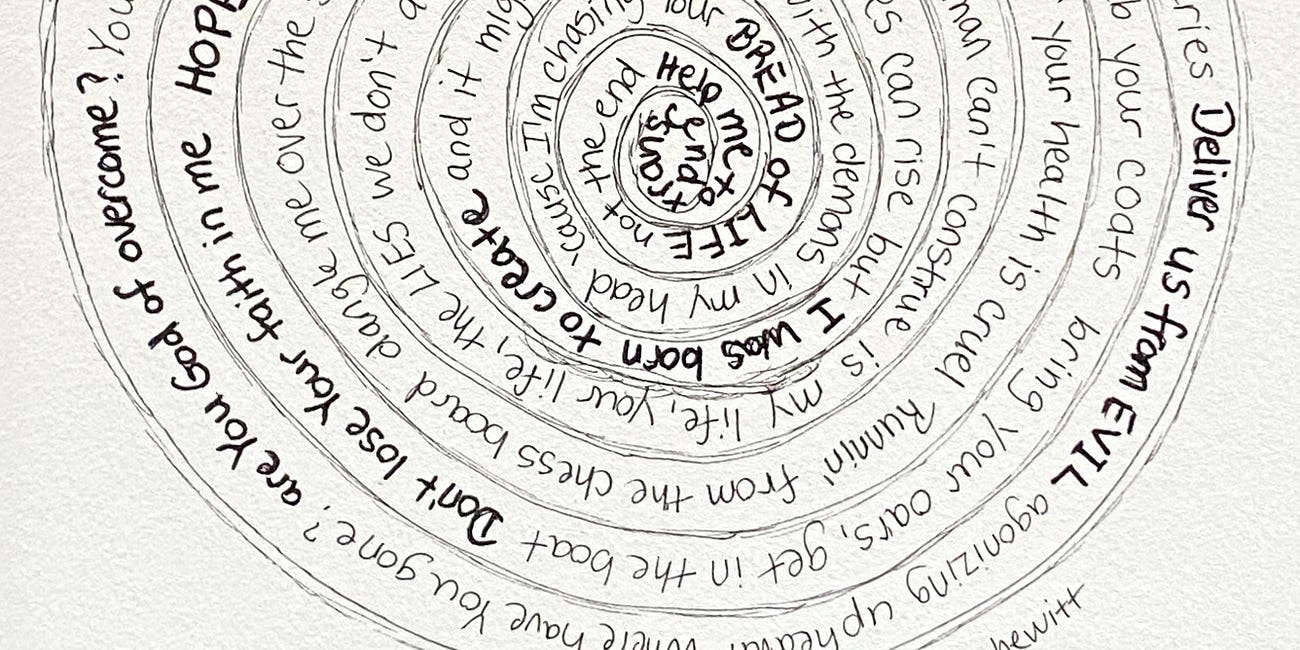 ries Deliver us from EVIL agonizing upheaval. Where have You gone? are You God of overcome? You
your coats bring your oars, get in the boat Don't lose Your faith in me HOPE
your health is cruel Runnin' from the chess board dangle me over the
man can't construe is my life, your life, the LIES we don't
can rise but I was born to create and it
with the demons in my head 'cause I'm chasing
Your BREAD of LIFE not the end
Help me to transcend
hewitt